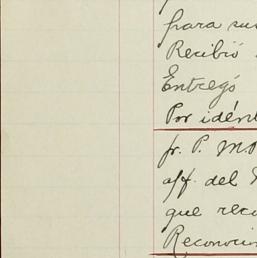 para sus
Recibió
Entregó
Por idént
fr. P. Mo
aff. del
que reco
Reconocim